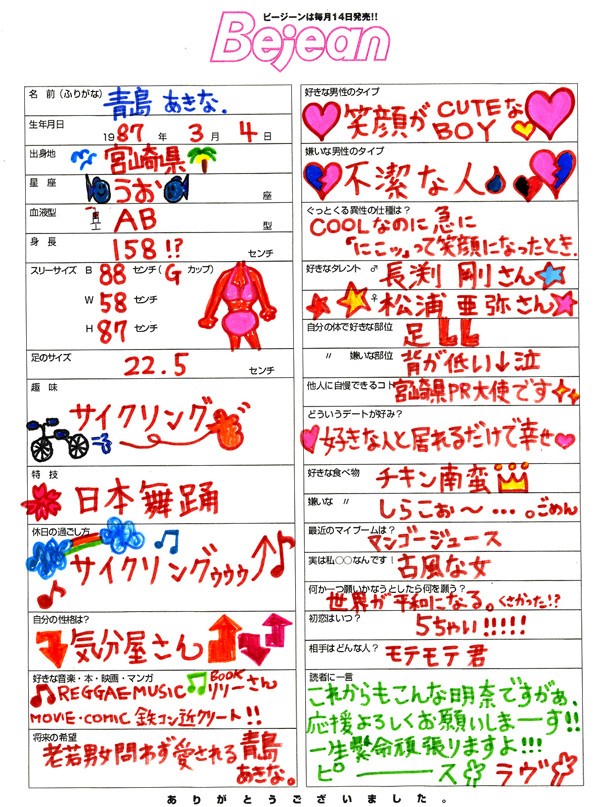 ビージーンは毎月14日発売!!
Bejean
名 前(ふりがな)
青島 あきな.
生年月日
1987年 3月 4日
出身地
宮崎県
星 座
うお座
血液型
AB型
身 長
158!?センチ
スリーサイズ B 88センチ(Gカップ)
W 58センチ
H 87センチ
足のサイズ
22.5センチ
趣 味
サイクリング
特 技
日本舞踊
休日の過ごし方
サイクリングゥゥゥ
自分の性格は?
気分屋さん
好きな音楽・本・映画・マンガ
REGGAE MUSIC BOOK リリーさん
MOVIE・COMIC 鉄コン近クリート!!
将来の希望
老若男女問わず愛される青島
あきな。
好きな男性のタイプ
笑顔がCUTEな
BOY
嫌いな男性のタイプ
不潔な人
ぐっとくる異性の仕種は?
COOLなのに急に
「にこッ」って笑顔になったとき.
好きなタレント ♂ 長渕 剛さん
♀ 松浦 亜弥さん
自分の体で好きな部位
足
〃 嫌いな部位
背が低い↓泣
他人に自慢できるコト
宮崎県PR大使です
どういうデートが好み?
好きな人と居れるだけで幸せ
好きな食べ物
チキン南蛮
嫌いな 〃
しらこぉ〜…。ごめん
最近のマイブームは?
マンゴージュース
実は私○○なんです!
古風な女
何か一つ願いかなうとしたら何を願う?
世界が平和になる。くさかった!?
初恋はいつ?
5ちゃい!!!!!
相手はどんな人?
モテモテ君
読者に一言
これからもこんな明奈ですがぁ、
応援よろしくお願いしまーす!!
一生懸命頑張りますよ!!!
ピーーース ラヴ
ありがとうございました。